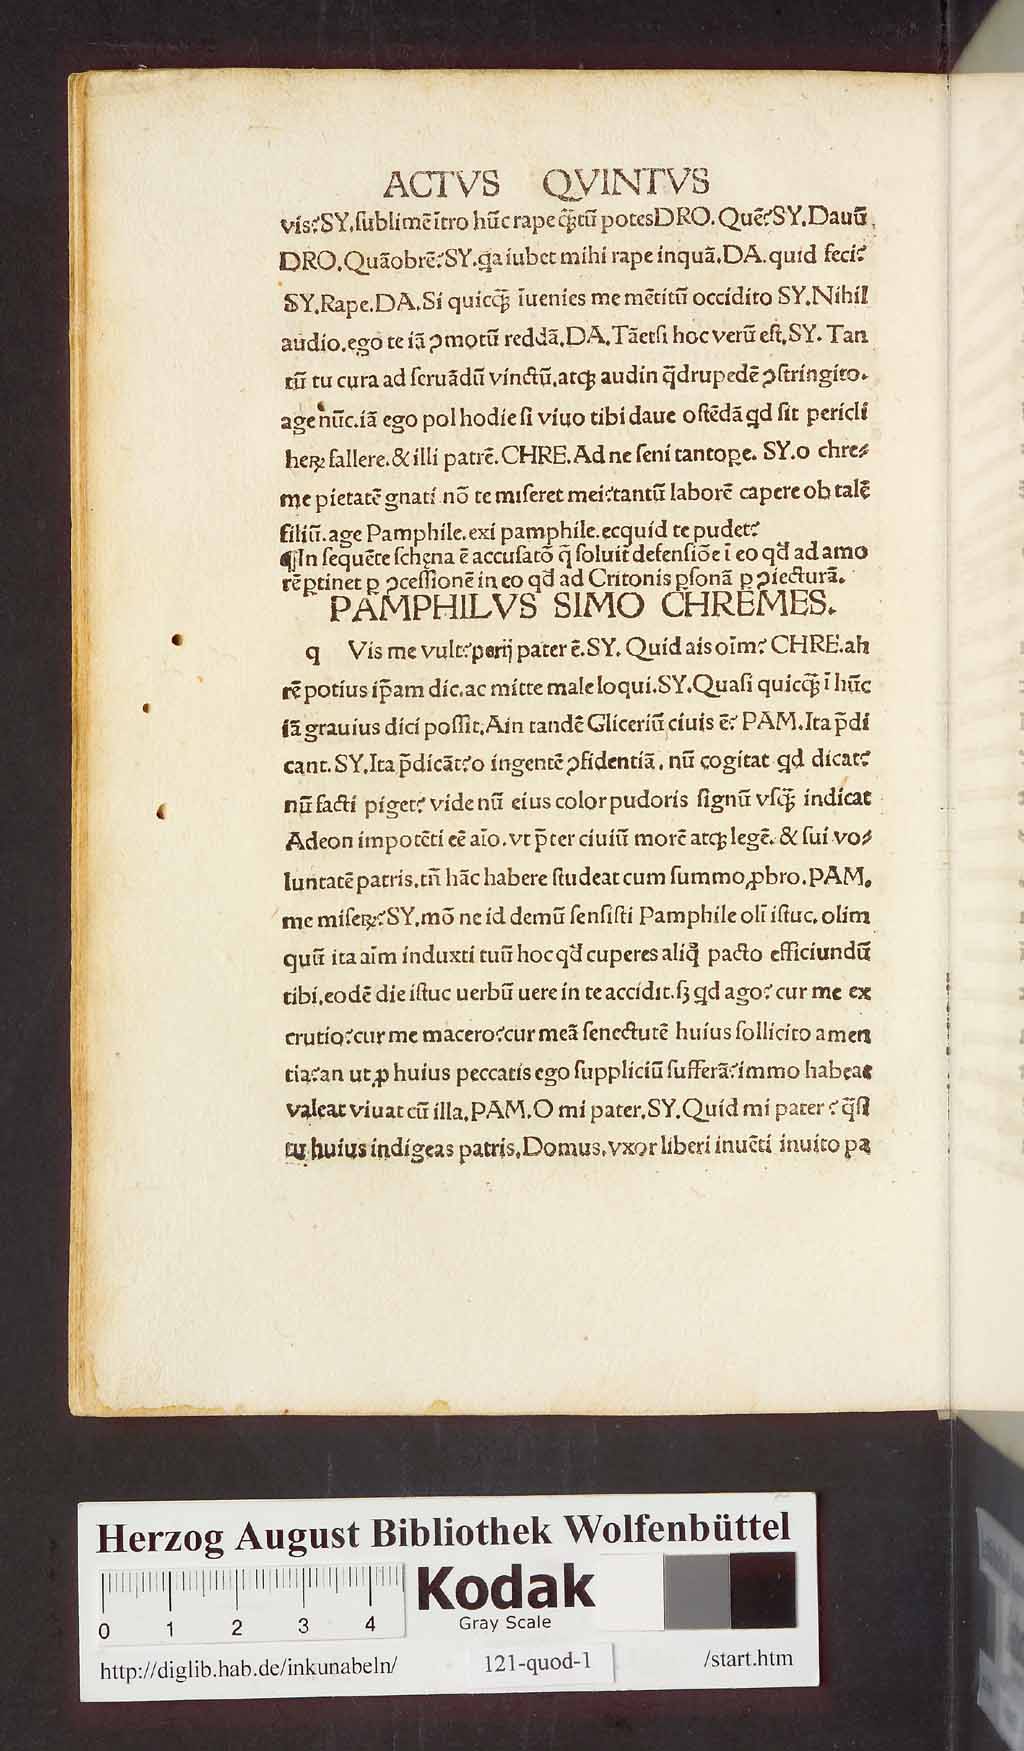 ACTVS QVINTVS
vis?SY.ſublimē ītro hūc rape q̄ꝫtū potesDRO.Quē?SY.Dauū.
DRO.Quāobrē?SY.qa iubet mihi rape inquā.DA.quid feci?
SY.Rape.DA.Si quicq̄ꝫ īuenies me mētitū occidito SY.Nihil
audio.ego te iā ꝯmotū reddā.DA.Tāetſi hoc verū eſt.SY.Tan
tū tu cura ad ſeruādū vinctū.atqꝫ audin q̄drupedē ꝯſtringito.
age nūc.iā ego pol hodie ſi viuo tibi daue oſtēdā qd ſit pericli
heꝝ fallere.& illi patrē.CHRE.Ad ne ſeni tantoꝑe. SY.o chre⸗
me pietatē gnati nō te miſeret mei?tantū laborē capere ob talē
filiū.age Pamphile.exi pamphile.ecquid te pudet?
¶In ſequēte ſchęna ē accuſatō q̄ ſoluit̄ defenſiōe ī eo qd̓ ad amo
rē ꝑtinet ꝑ ꝯceſſionē in eo qd̓ ad Critonis ꝑſonā ꝑ ꝯiecturā.
PAMPHILVS SIMO CHREMES.
q Vis me vult?perij pater ē.SY. Quid ais oīm? CHRE.ah
rē potius ip̄am dic.ac mitte male loqui.SY.Quaſi quicq̄ꝫ ī hūc
iā grauius dici poſſit.Ain tandē Gliceriū ciuis ē? PAM.Ita p̄di
cant.SY.Ita p̄dicāt?o ingentē ꝯfidentiā. nū cogitat qd dicat?
nū facti piget? vide nū eius color pudoris ſignū vſq̄ꝫ indicat
Adeon impotēti eē aīo.vt p̄ter ciuiū morē atqꝫ legē. & ſui vo⸗
luntatē patris.tn̄ hāc habere ſtudeat cum ſummo ꝓbro.PAM.
me miſeꝝ?SY.mō ne id demū ſenſiſti Pamphile olī iſtuc.olim
quū ita aīm induxti tuū hoc qd̓ cuperes aliq̊ pacto efficiundū
tibi.eodē die iſtuc uerbū uere in te accidit.ſꝫ qd ago? cur me ex
crutio?cur me macero?cur meā ſenectutē huius ſollicito amen
tia?an ut ꝓ huius peccatis ego ſuppliciū ſufferā?immo habeat
valeat viuat cū illa.PAM.O mi pater.SY.Quid mi pater ? q̄ſi
tu huius indigeas patris.Domus.vxor liberi inuēti inuito pa
Herzog August Bibliothek Wolfenbüttel
0 1 2 3 4
Kodak
Gray Scale
http://diglib.hab.de/inkunabeln/ 121-quod-1 /start.htm